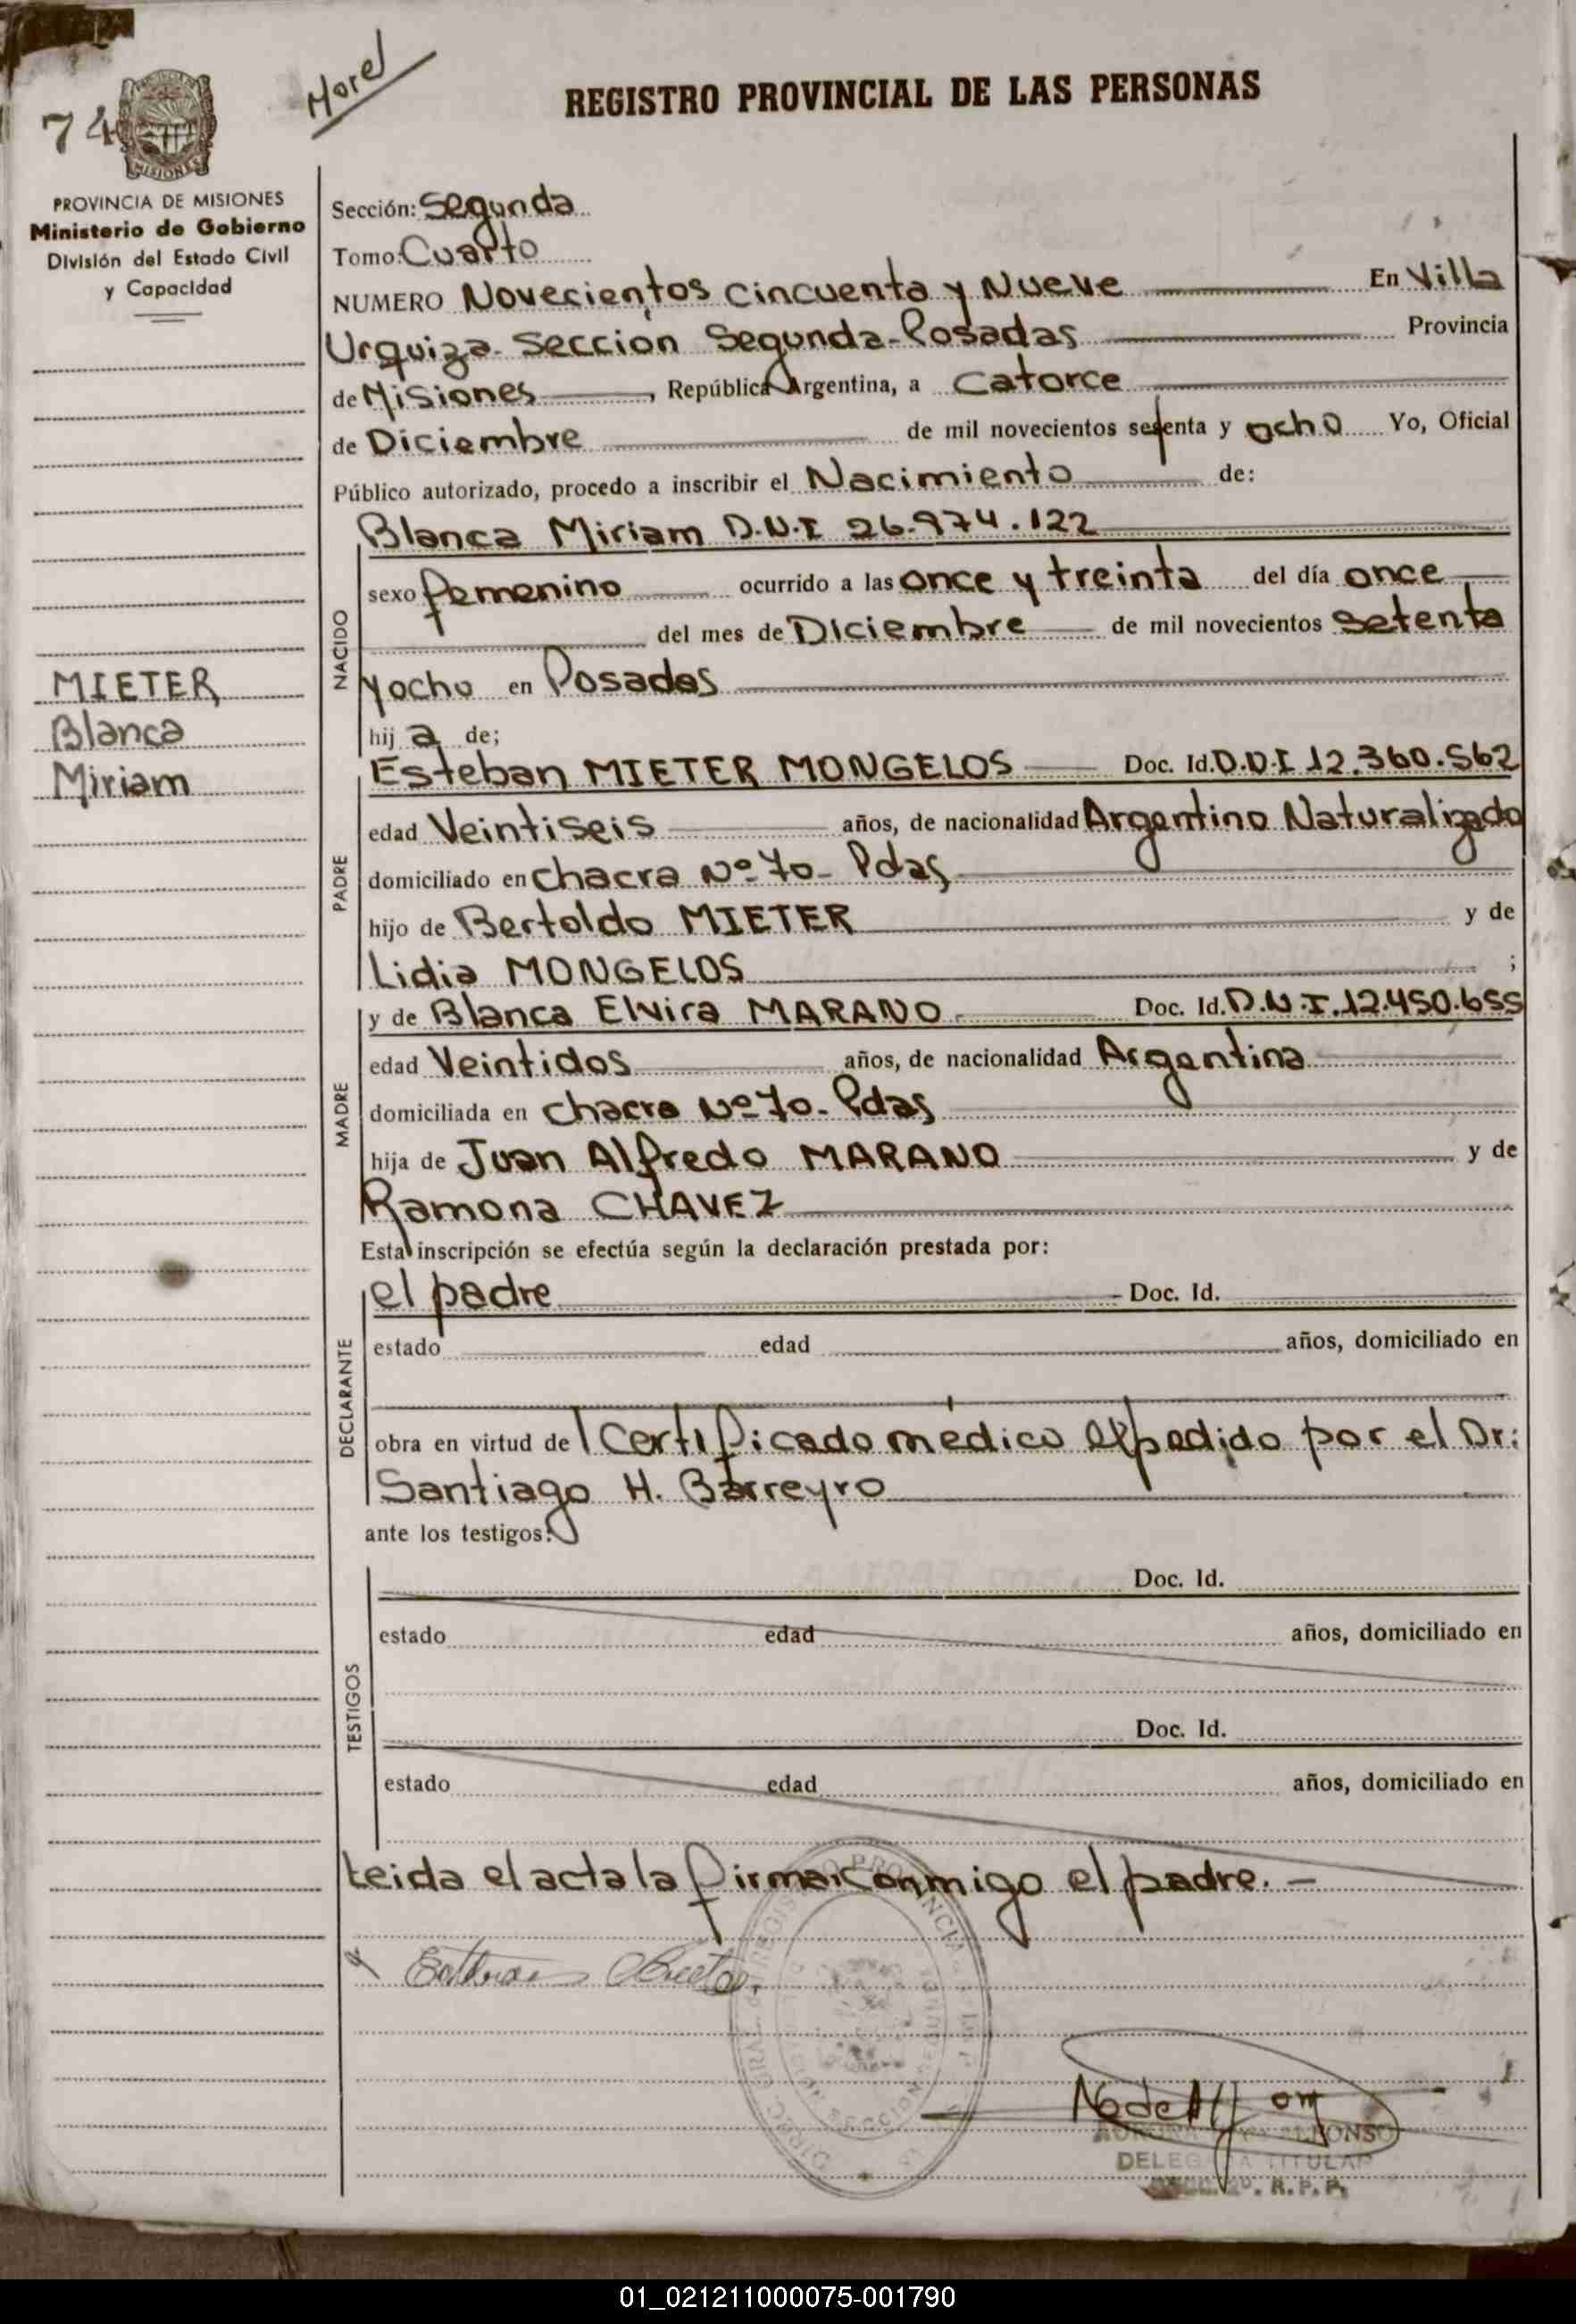 74
Morel
REGISTRO PROVINCIAL DE LAS PERSONAS
MISIONES
PROVINCIA DE MISIONES
Ministerio de Gobierno
División del Estado Civil
y Capacidad
MIETER
Blanca
Miriam
Sección: Segunda
Tomo: Cuarto
NUMERO Novecientos Cincuenta y Nueve En Villa
Urquiza- Sección Segunda-Posadas Provincia
de Misiones, República Argentina, a Catorce
de Diciembre de mil novecientos setenta y ocho Yo, Oficial
Público autorizado, procedo a inscribir el Nacimiento de:
Blanca Miriam D.N.I 26.974.122
NACIDO
sexo femenino ocurrido a las once y treinta del día once
del mes de Diciembre de mil novecientos setenta
y ocho en Posadas
hij a de;
PADRE
Esteban MIETER MONGELOS Doc. Id. D.N.I 12.360.562
edad Veintiseis años, de nacionalidad Argentino Naturalizado
domiciliado en chacra Nº 70- Pdas
hijo de Bertoldo MIETER y de
Lidia MONGELOS ;
MADRE
y de Blanca Elvira MARANO Doc. Id. D.N.I.12.450.655
edad Veintidos años, de nacionalidad Argentina
domiciliada en chacra Nº 70- Pdas
hija de Juan Alfredo MARANO y de
Ramona CHAVEZ
Esta inscripción se efectúa según la declaración prestada por:
DECLARANTE
el padre Doc. Id.
estado edad años, domiciliado en
obra en virtud de l certificado médico expedido por el Dr:
Santiago H. Barreyro
ante los testigos:
TESTIGOS
Doc. Id.
estado edad años, domiciliado en
Doc. Id.
estado edad años, domiciliado en
Leida el acta la firma conmigo el padre. -
ALFONSO
DELEGADA TITULAR
R. P. P.
01_021211000075-001790